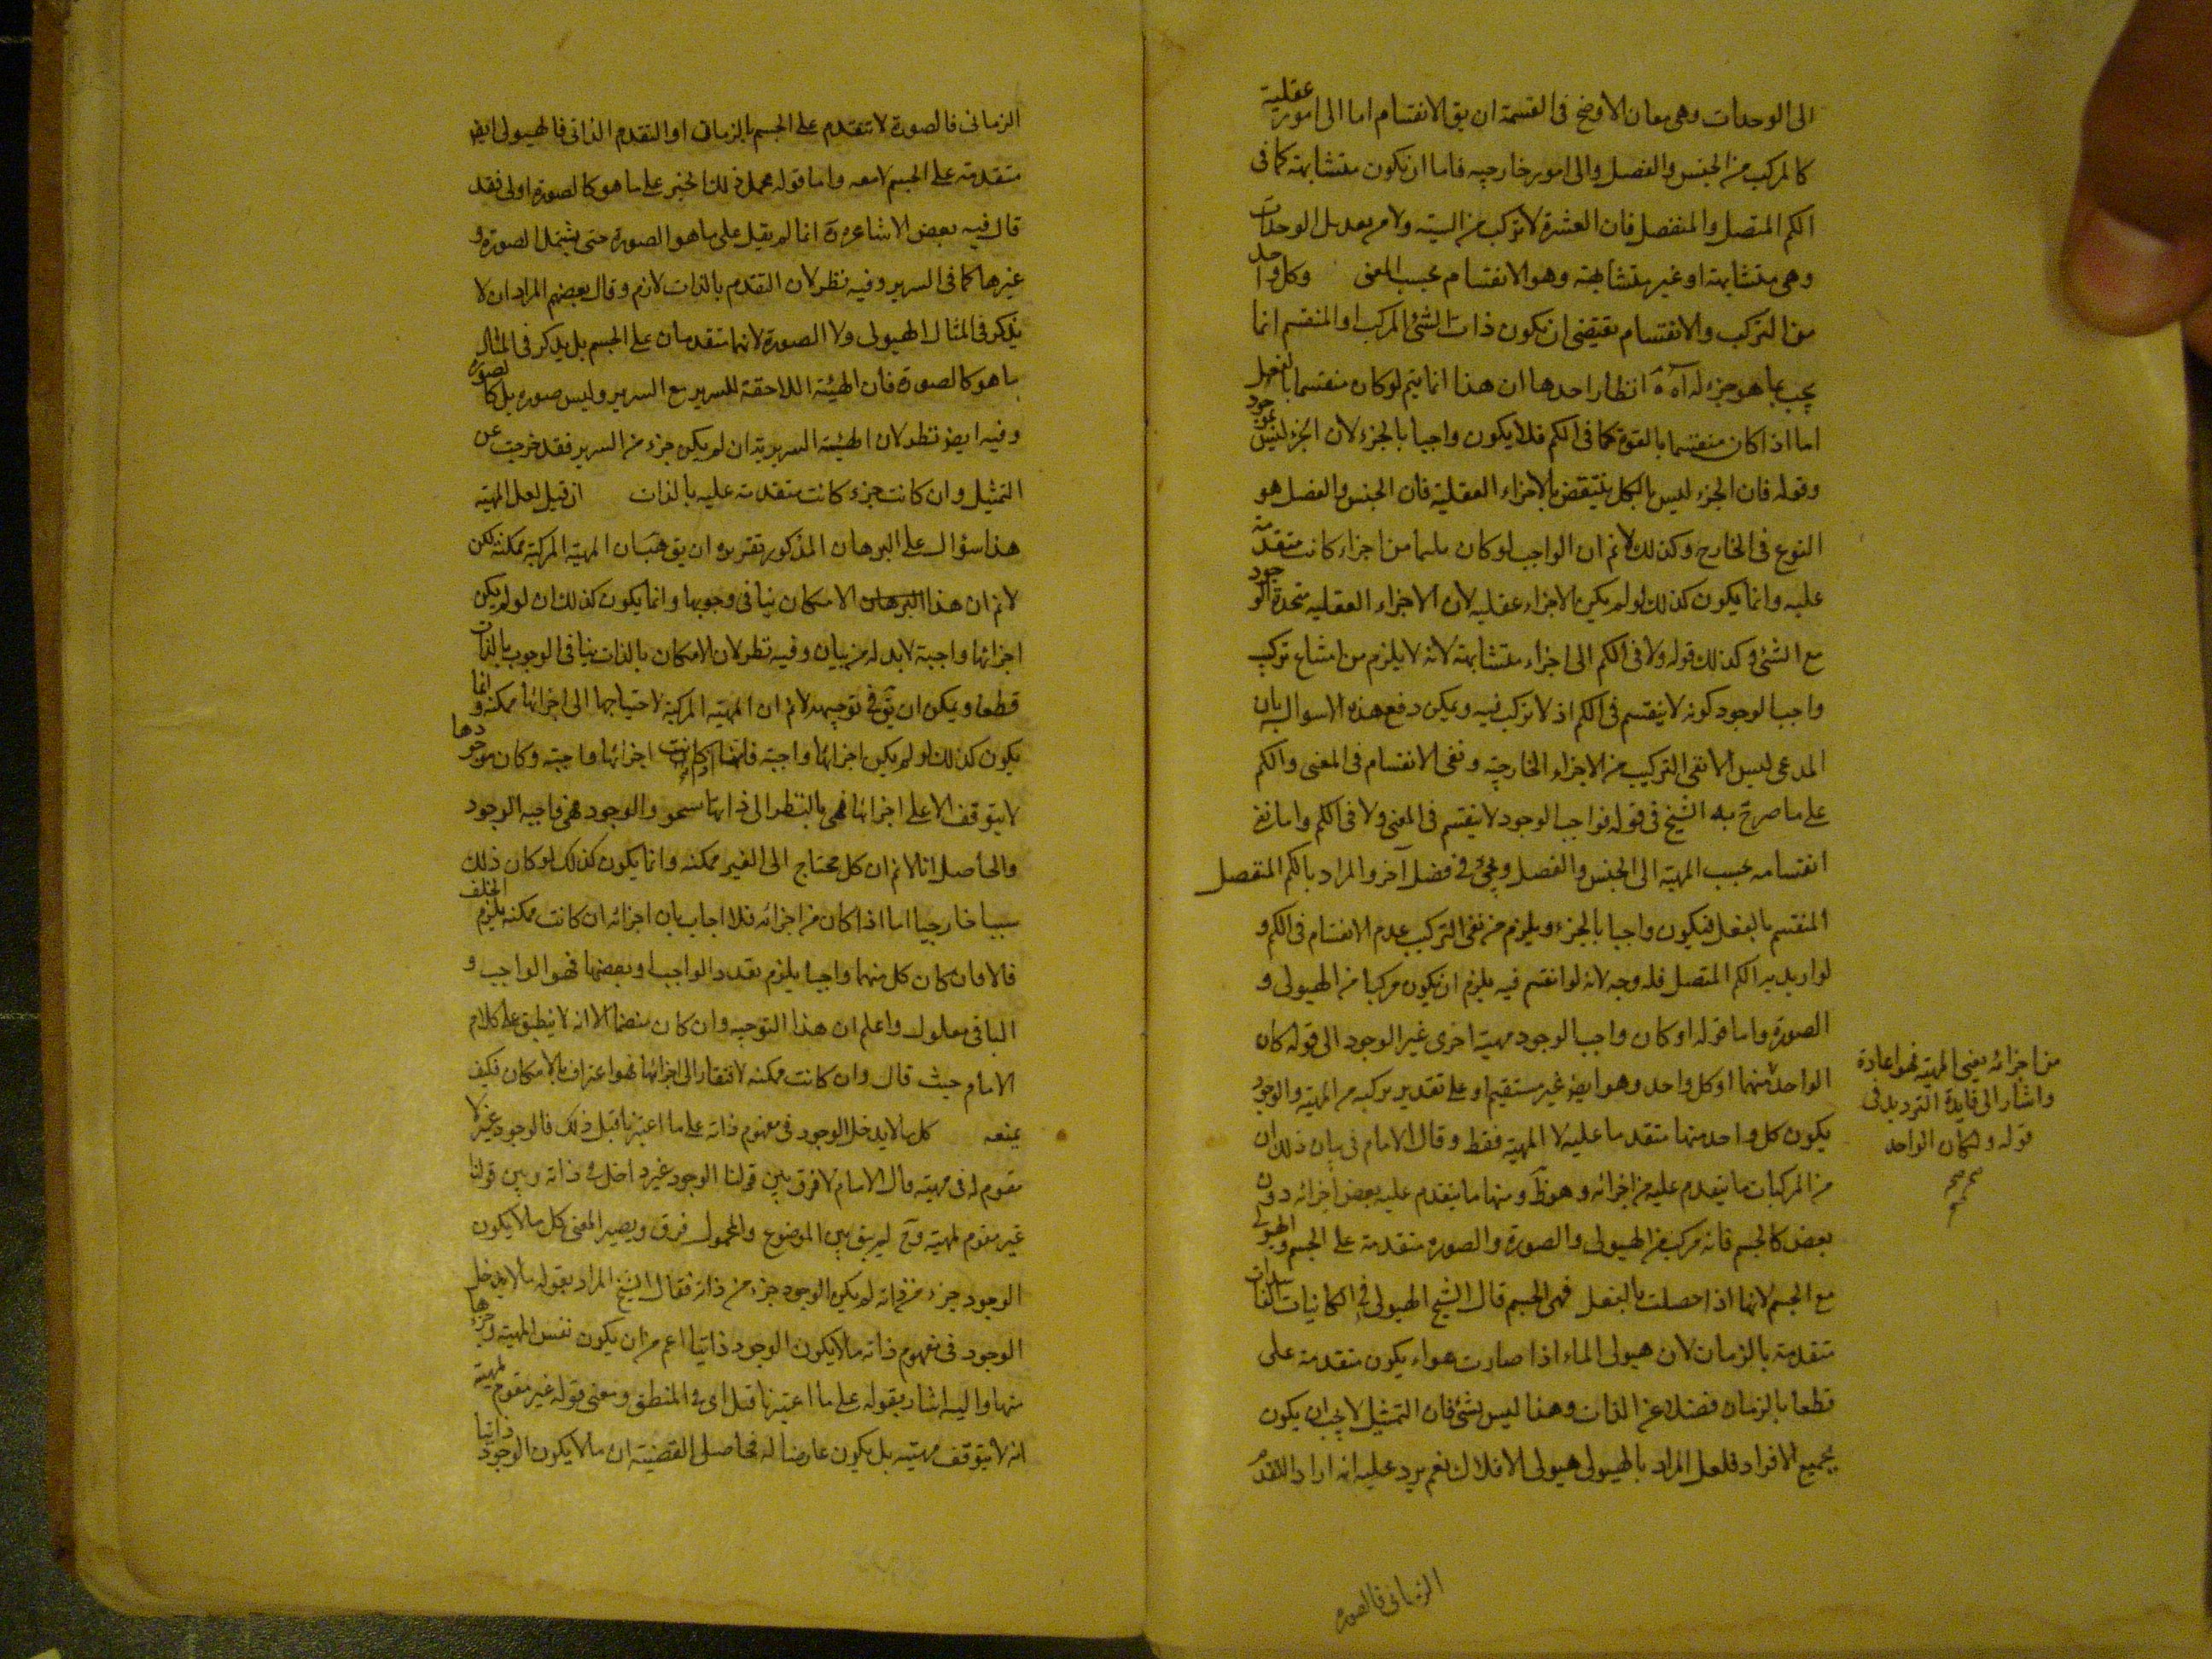 الى الوحدات وهى معان الاوضح فى القسمة ان يق الانقسام اما الى امور عقلية
كالمركب من الجنس والفصل والى امور خارجيه فاما ان يكون متشابهة كما فى
الكم المتصل والمنفصل فان العشرة لا تركب من الستة ولا من بعد بل الوحدات
وهى متشابهة او غير متشابهة وهو الانقسام بحسب المعنى وكل واحد
من التركب والانقسام يقتضى ان يكون ذات الشئ المركب او المنقسم انما
يجب بما هو جزء له آه ة انظار احدها ان هذا انما يتم لو كان منقسما بالفعل
اما اذا كان منقسما بالقوة كما فى الكم فلا يكون واجبا بالجزء لان الجزء ليس بموجود
وقوله فان الجزء ليس بالكل ينتقض بالاجزاء العقلية فان الجنس والفصل هو
النوع فى الخارج وكذلك لا نم ان الواجب لو كان ملتئما من اجزاء كانت متقدمة
عليه وانما يكون كذلك لو لم يكن الاجزاء عقليه لان الاجزاء العقليه متحدة الوجود
مع الشئ وكذلك قوله ولا فى الكم الى اجزاء متشابهة لانه لا يلزم من امتناع تركب
واجب الوجود كونه لا ينقسم فى الكم اذ لا تركب فيه ويمكن دفع هذه الاسوال بان
المدعى ليس الا نفى التركيب من الاجزاء الخارجية ونفى الانقسام فى المعنى والكم
على ما صرح به الشيخ فى قوله فواجب الوجود لا ينقسم فى المعنى ولا فى الكم واما نفى
انقسامه بحسب المهية الى الجنس والفصل ويجئ فى فصل آخر والمراد بالكم المنفصل
المنقسم بالفعل فيكون واجبا بالجزء ويلزم من نفى التركيب عدم الانقسام فى الكم و
لو اريد به الكم المتصل فله وجه لانه لو انقسم فيه يلزم ان يكون مركبا من الهيولى و
الصورة واما قوله او كان واجب الوجود مهية اخرى غير الوجود الى قوله كان
الواحد منهما او كل واحد وهو ايض غير مستقيم او على تقدير تركبه من المهية والوجود
يكون كل واحد منهما متقدما عليه لا المهية فقط وقال الامام فى بيان ذلك ان
من المركبات ما يتقدم عليه من اجزائه وهو ظ ومنها ما يتقدم عليه بعض اجزائه دون
بعض كالجسم فانه مركب من الهيولى والصورة والصورة متقدمة على الجسم والهيولى
مع الجسم لانها اذا حصلت بالفعل فهى الجسم قال الشيخ الهيولى فى الكائنات الفاسدات
متقدمة بالزمان لان هيولى الماء اذا صارت هواء يكون متقدمة على
قطعا بالزمان فضلا عن الذات وهذا ليس بشئ فان التمثيل لا يجب ان يكون
بجميع الافراد فلعل المراد بالهيولى هيولى الافلاك نعم يرد عليه انه اراد التقدم
من اجزائه يعنى المهية فهو اعادة
واشار الى فايدة الترديد فى
قوله ولكان الواحد
صح
الزمانى فالصورة
الزمانى فالصورة لا تتقدم على الجسم بالزمان او التقدم الذاتى فالهيولى ايض
متقدمة على الجسم لا معه واما قوله محمل ذلك الخبر على ما هو كالصورة اولى فقد
قال فيه بعض الاشاعرة انما لم يقل على ما هو الصورة حتى يشتمل الصورة و
غيرها كما فى السرير وفيه نظر لان التقدم بالذات لازم وقال بعضهم المراد ان لا
يذكر فى المثال الهيولى ولا الصورة لانهما متقدمان على الجسم بل يذكر فى المثال
ما هو كالصورة فان الهيئة اللاحقة للسرير مع السرير وليس صورة بل كالصورة
وفيه ايض نظر لان الهيئة السريرية ان لم يكن جزء من السرير فقد خرجت عن
التمثيل وان كانت جزء كانت متقدمة عليه بالذات ان قيل لعل المهية
هذا سؤال على البرهان المذكور تقريره ان يق هب ان المهية المركبة ممكنة لكن
لا نم ان هذا البرهان الامكان ينافى وجوبها وانما يكون كذلك ان لو لم يكن
اجزائها واجبة لابد له من بيان وفيه نظر لان الامكان بالذات ينافى الوجوب بالذات
قطعا ويمكن ان يق فى توجيهه لا نم ان المهية المركبة لاحتياجها الى اجزائها ممكنة وانما
يكون كذلك لو لم يكن اجزائها واجبة فانها اذا كانت اجزائها واجبة وكان موجودها
لا يتوقف الا على اجزائها فهى بالنظر الى ذاتها والوجود فهى واجبه الوجود
والحاصل انا لا نم ان كل محتاج الى الغير ممكنه وانما يكون كذلك لو كان ذلك
سببا خارجيا اما اذا كان من اجزائه فلا اجاب بان اجزائه ان كانت ممكنه يلزم الخلف
فالا فان كان كل منهما واجبا يلزم تعدد الواجب او بعضها فهو الواجب و
الباقى معلول واعلم ان هذا التوجيه وان كان منضما الا انه لا ينطبق على كلام
الامام حيث قال وان كانت ممكنه لافتقار الى اجزائها فهو اعتراف بالامكان فكيف
يمنعه كل ما لا يدخل الوجود فى مفهوم ذاته على ما اعتبرنا قبل ذلك فالوجود غير
مقوم له فى مهيته قال الامام لا فرق بين قولنا الوجود غير داخل فى ذاته وبين قولنا
غير مقوم لمهيته وح لم يبق بين الموضوع والمحمول فرق ويصير المعنى كل ما لا يكون
الوجود جزء من ذاته لم يكن الوجود جزء من ذاته فقال الشيخ المراد بقوله ما لا يدخل
الوجود فى مفهوم ذاته ما لا يكون الوجود ذاتيا اعم من ان يكون نفس المهية او جزءها
منها واليه اشار بقوله على ما اعتبرنا قبل اى فى المنطق ومعنى قوله غير مقوم لمهيته
انه لا يتوقف مهيته بل يكون عارضا له فحاصل القضية ان ما لا يكون الوجود ذاتيا